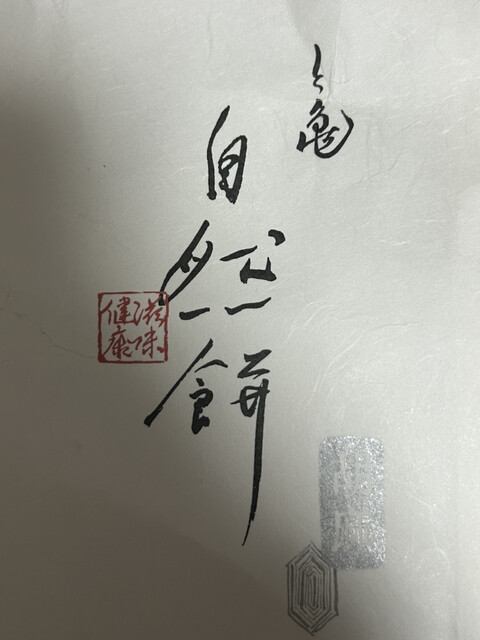 亀
自然餅
滋味
健康
胡麻